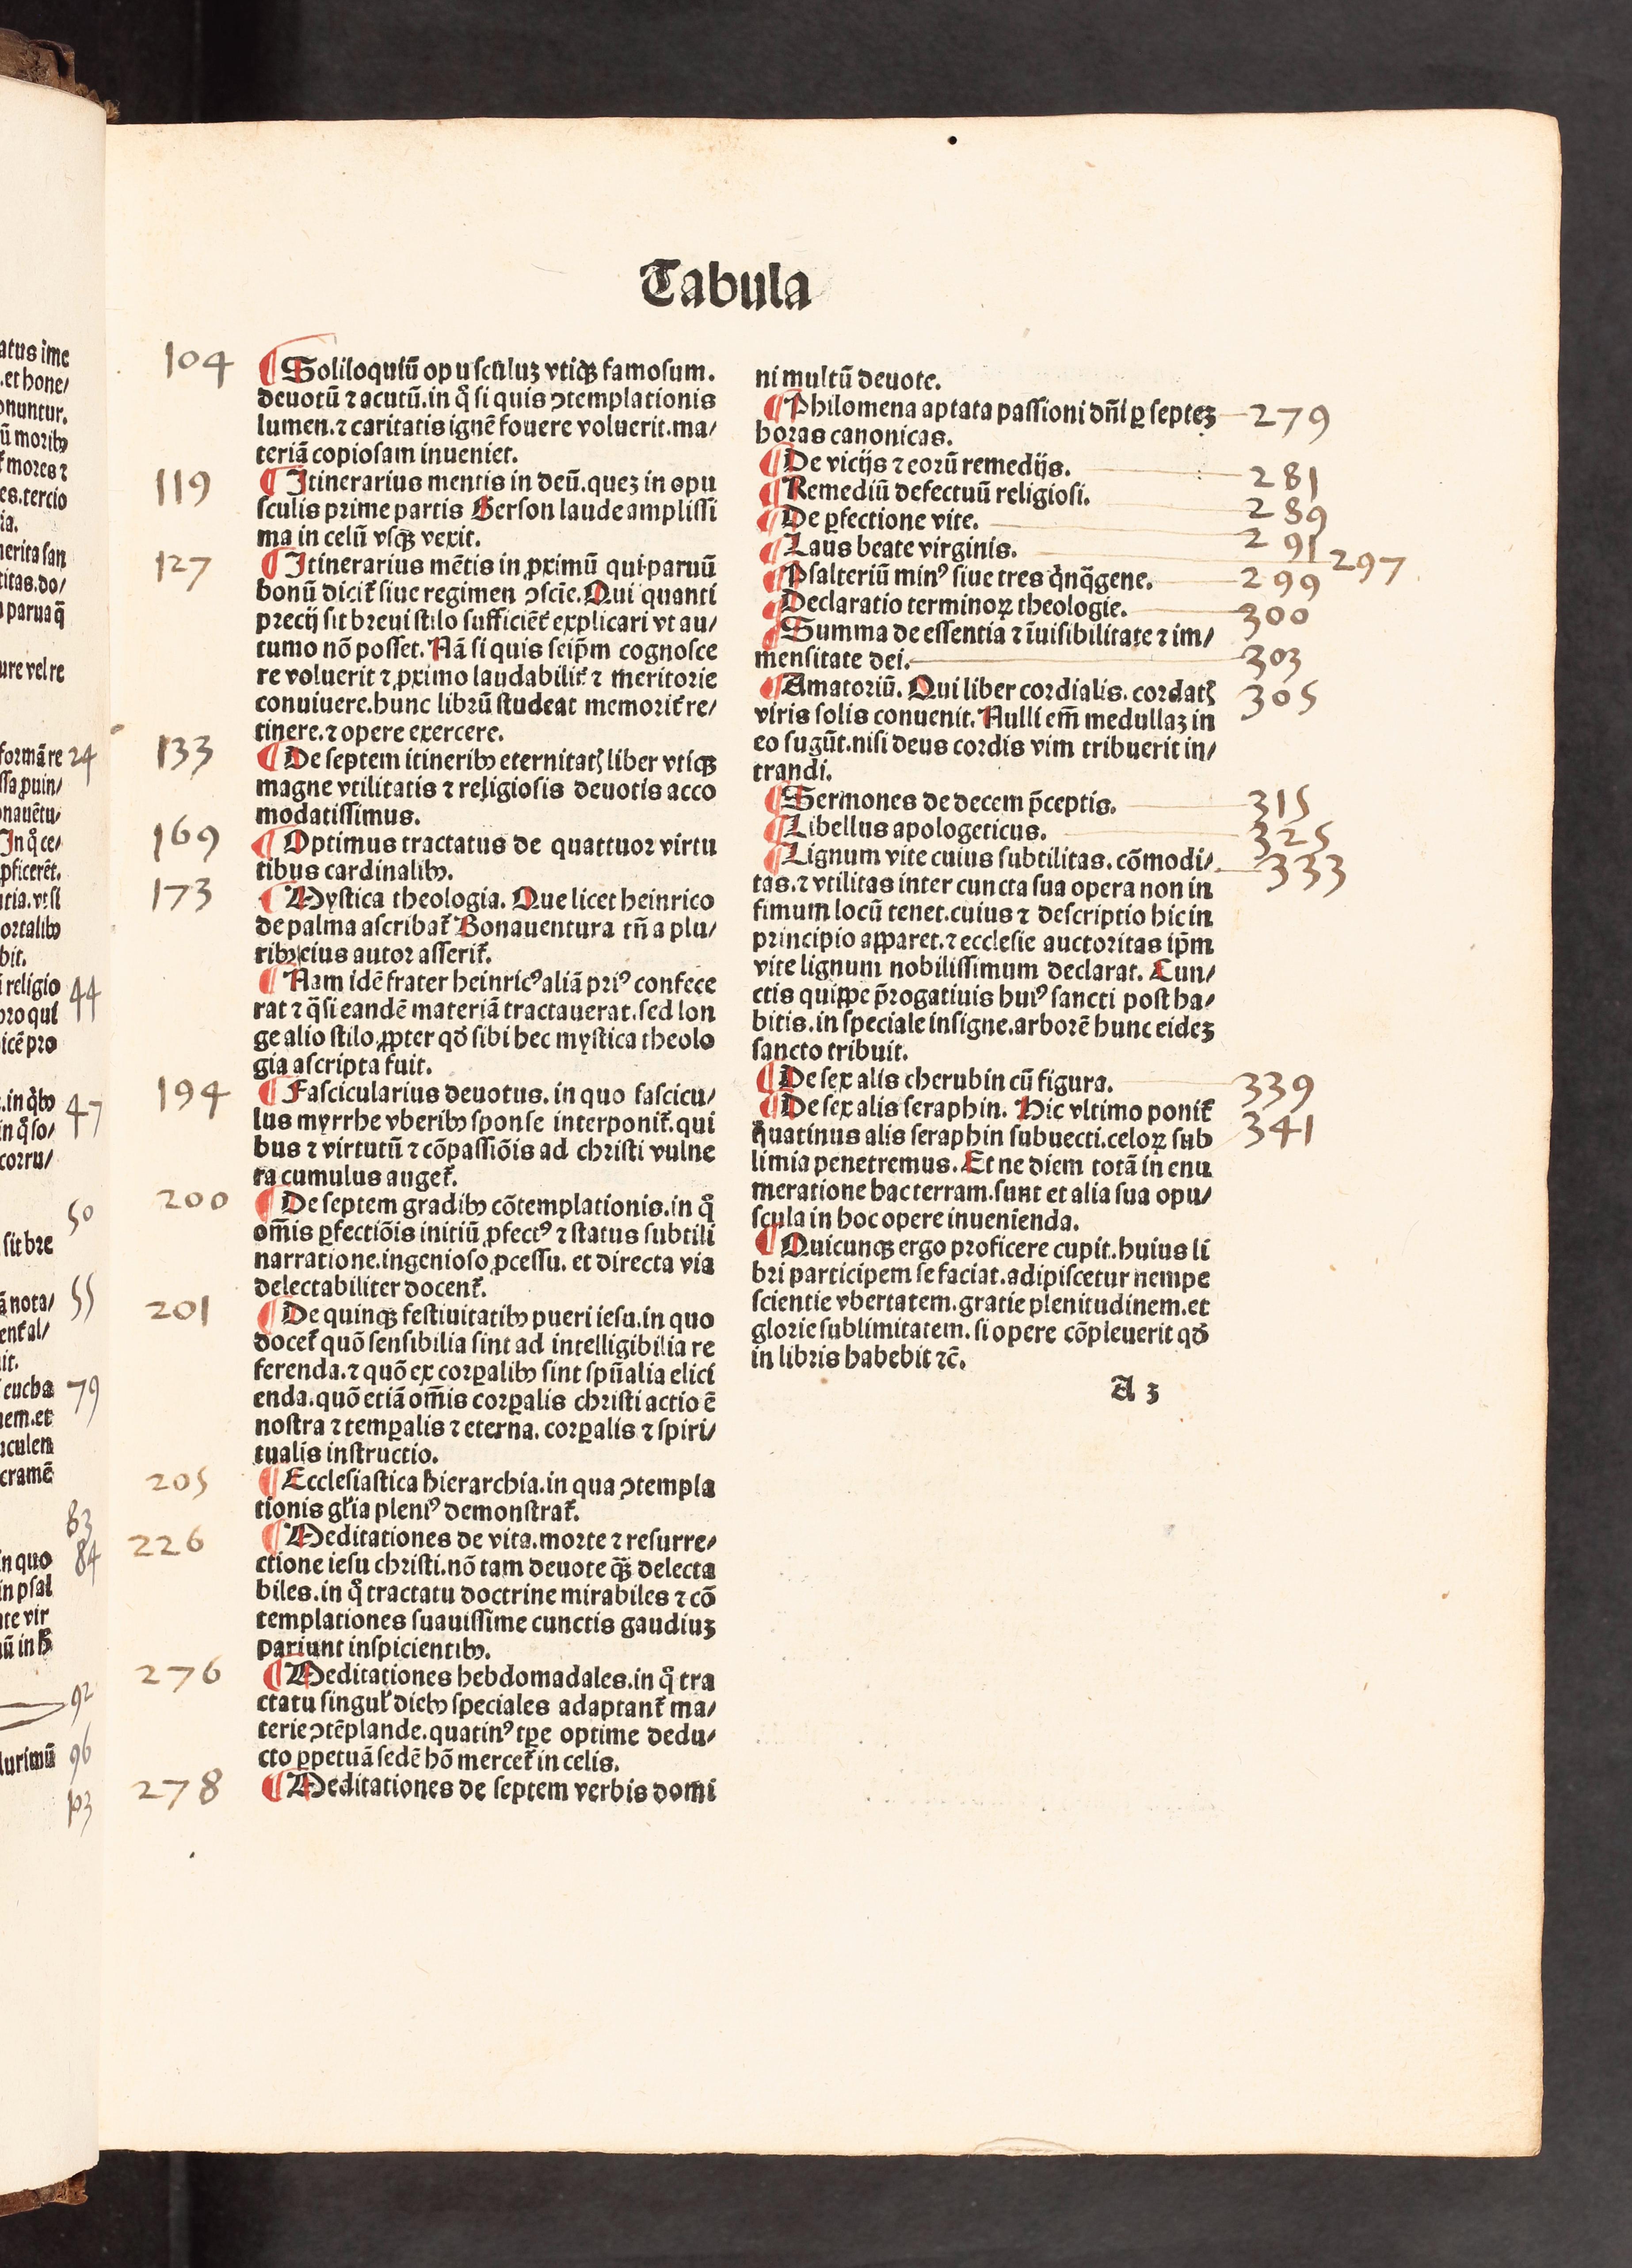 Tabula
104
¶ Soliloquiū opusculuꝫ vtiqꝫ famosum.
deuotū ⁊ acutū. in q̊ si quis ↄtemplationis
lumen. ⁊ caritatis ignē fouere voluerit. ma/
teriā copiosam inueniet.
119
¶ Itinerarius mentis in deū. queꝫ in opu
sculis prime partis Gerson laude amplissi
ma in celū vsqꝫ vexit.
127
¶ Itinerarius mētis in ꝓximū qui paruū
bonū dicit᷑ siue regimen ↄscīe. Qui quanti
precij sit breui stilo sufficiēt᷑ explicari vt au/
tumo nō posset. Nā si quis seip̄m cognosce
re voluerit ⁊ ꝓximo laudabilit᷑ ⁊ meritorie
conuiuere. hunc librū studeat memorit᷑ re/
tinere. ⁊ opere exercere.
133
¶ De septem itineribꝰ eternitatꝭ liber vtiqꝫ
magne vtilitatis ⁊ religiosis deuotis acco
modatissimus.
169
¶ Optimus tractatus de quattuor virtu
tibus cardinalibꝰ.
173
¶ Mystica theologia. Que licet heinrico
de palma ascribat᷑ Bonauentura tn̄ a plu/
ribꝰ eius autor asserit᷑.
¶ Nam idē frater heinricꝰ aliā priꝰ confece
rat ⁊ q̄si eandē materiā tractauerat. sed lon
ge alio stilo, ꝓpter qd̄ sibi hec mystica theolo
gia ascripta fuit.
194
¶ Fascicularius deuotus. in quo fascicu/
lus myrrhe vberibꝰ sponse interponit᷑. qui
bus ⁊ virtutū ⁊ cōpassiōis ad christi vulne
ra cumulus auget᷑.
200
¶ De septem gradibꝰ cōtemplationis. in q̊
om̄is ꝑfectiōis initiū ꝓfectꝰ ⁊ status subtili
narratione. ingenioso ꝓcessu. et directa via
delectabiliter docent᷑.
201
¶ De quinqꝫ festiuitatibꝰ pueri iesu. in quo
docet᷑ quō sensibilia sint ad intelligibilia re
ferenda. ⁊ quō ex corꝑalibꝰ sint spūalia elici
enda. quō etiā om̄is corꝑalis christi actio ē
nostra ⁊ temꝑalis ⁊ eterna. corꝑalis ⁊ spiri/
tualis instructio.
205
¶ Ecclesiastica hierarchia. in qua ↄtempla
tionis gl̄ia pleniꝰ demonstrat᷑.
226
¶ Meditationes de vita. morte ⁊ resurre/
ctione iesu christi. nō tam deuote qꝫ̄ delecta
biles. in q̊ tractatu doctrine mirabiles ⁊ cō
templationes suauissime cunctis gaudiuꝫ
pariunt inspicientibꝰ.
276
¶ Meditationes hebdomadales. in q̊ tra
ctatu singul᷑ diebꝰ speciales adaptant᷑ ma/
terie ↄtēplande. quatinꝰ tꝑe optime dedu/
cto ꝑpetuā sedē hō mercet᷑ in celis.
278
¶ Meditationes de septem verbis domi
ni multū deuote.
¶ Philomena aptata passioni dn̄i ꝑ septeꝫ 279
horas canonicas.
¶ De vicijs ⁊ eorū remedijs. 281
¶ Remediū defectuū religiosi. 289
¶ De ꝑfectione vite. 291
¶ Laus beate virginis. 297
¶ Psalteriū minꝰ siue tres q̇nq̄gene. 299
¶ Declaratio terminoꝝ theologie. 300
¶ Summa de essentia ⁊ īuisibilitate ⁊ im/
mensitate dei. 303
¶ Amatoriū. Qui liber cordialis. cordatꝭ 305
viris solis conuenit. Nulli em̄ medullaꝫ in
eo sugūt. nisi deus cordis vim tribuerit in/
trandi.
¶ Sermones de decem p̄ceptis. 315
¶ Libellus apologeticus. 325
¶ Lignum vite cuius subtilitas. cōmodi/ 333
tas. ⁊ vtilitas inter cuncta sua opera non in
fimum locū tenet. cuius ⁊ descriptio hic in
principio apparet. ⁊ ecclesie auctoritas ip̄m
vite lignum nobilissimum declarat. Cun/
ctis quippe p̄rogatiuis huiꝰ sancti post ha/
bitis. in speciale insigne. arborē hunc eideꝫ
sancto tribuit.
¶ De sex alis cherubin cū figura. 339
¶ De sex alis seraphin. Hic vltimo ponit᷑ 341
quatinus alis seraphin subuecti. celoꝝ sub
limia penetremus. Et ne diem totā in enu
meratione hac terram. sunt et alia sua opu/
scula in hoc opere inuenienda.
¶ Quicunqꝫ ergo proficere cupit. huius li
bri participem se faciat. adipiscetur nempe
scientie vbertatem. gratie plenitudinem. et
glorie sublimitatem. si opere cōpleuerit qd̄
in libris habebit ⁊c̄.
A 3